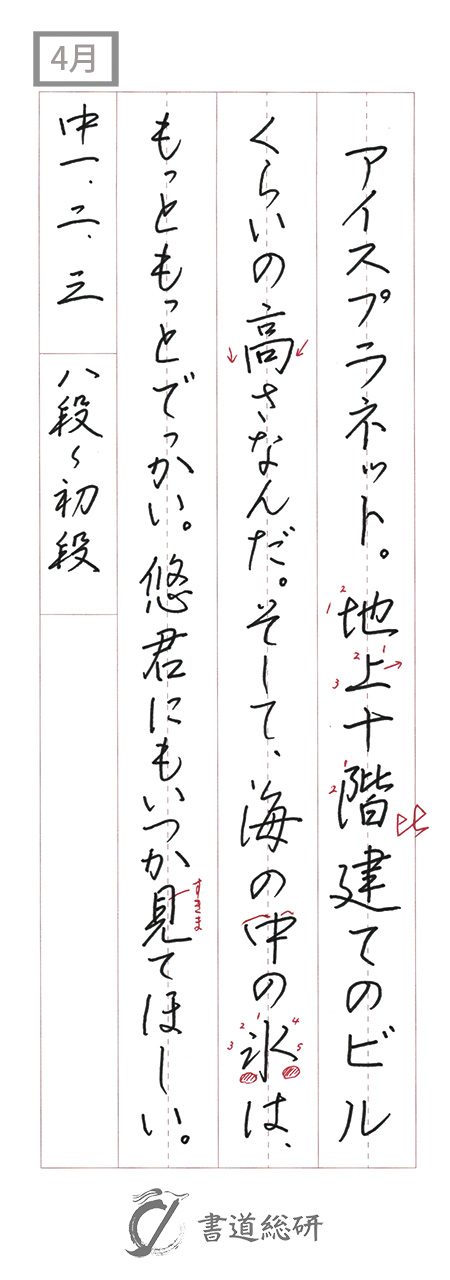 4月
アイスプラネット。地上十階建てのビル
くらいの高さなんだ。そして、海の中の氷は、
もっともっとでっかい。悠君にもいつか見てほしい。
すきま
中一、二、三
八段〜初段
書道総研